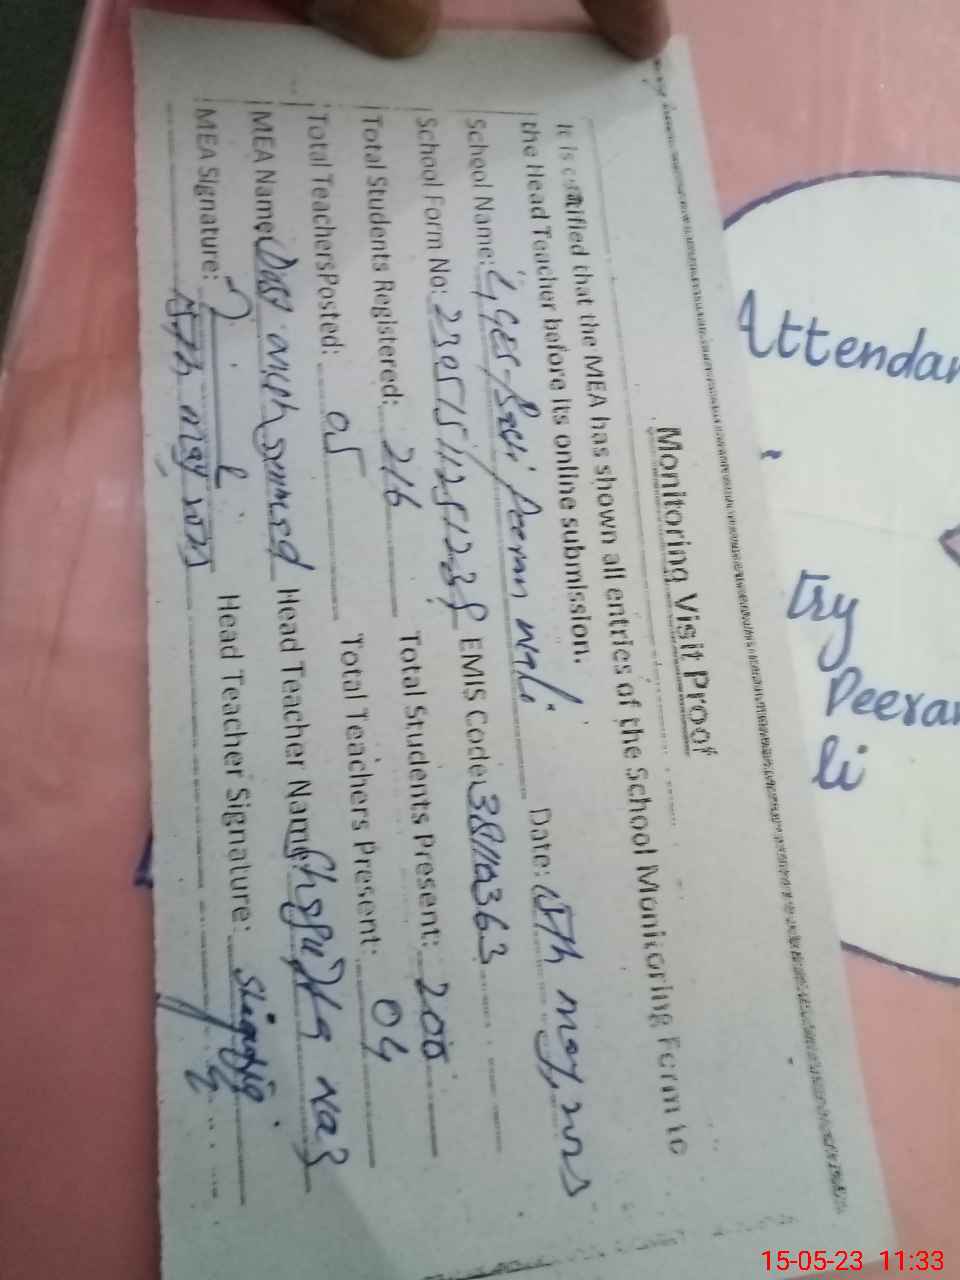 Monitoring Visit Proof
It is certified that the MEA has shown all entries of the School Monitoring Form to
the Head Teacher before its online submission.
School Name: GGES Peeran Wali Date: 15th may, 2023
School Form No: 230515112512 EMIS Code: 38110363
Total Students Registered: 216 Total Students Present: 200
Total Teachers Posted: 05 Total Teachers Present: 04
MEA Name: Head Teacher Name: Naz
MEA Signature: Head Teacher Signature:
15th may
Attendan
try
Peeran
li
15-05-23 11:33